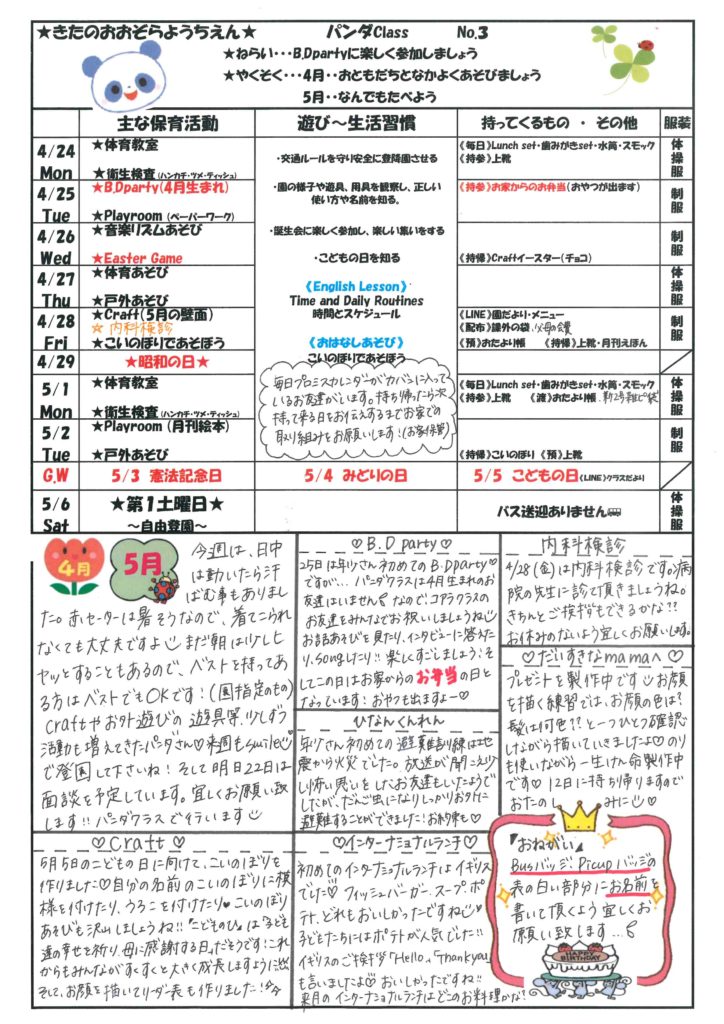 ★きたのおおぞらようちえん★ パンダClass No.3
★ねらい・・・B.Dpartyに楽しく参加しましょう
★やくそく・・・4月・・おともだちとなかよくあそびましょう
5月・・なんでもたべよう
主な保育活動 遊び～生活習慣 持ってくるもの ・ その他 服装
4/24 Mon
★体育教室
★衛生検査(ハンカチ・ツメ・ティッシュ)
・交通ルールを守り安全に登降園させる
《毎日》Lunch set・歯みがきset・水筒・スモック
《持参》上靴
体操服
4/25 Tue
★B.Dparty(4月生まれ)
★Playroom (ペーパーワーク)
・園の様子や遊具、用具を観察し、正しい
使い方や名前を知る。
《持参》お家からのお弁当(おやつが出ます)
制服
4/26 Wed
★音楽リズムあそび
★Easter Game
・誕生会に楽しく参加し、楽しい集いをする
・こどもの日を知る
《持帰》Craftイースター(チョコ)
制服
4/27 Thu
★体育あそび
★戸外あそび
《English Lesson》
Time and Daily Routines
時間とスケジュール
体操服
4/28 Fri
★Craft(5月の壁面)
☆ 内科検診
★こいのぼりであそぼう
《おはなしあそび》
こいのぼりであそぼう
《LINE》園だより・メニュー
《配布》課外の袋、父母の会費
《預》おたより帳 《持帰》上靴・月刊えほん
制服
4/29 ★昭和の日★
毎日プロミスカレンダーがカバンに入って
いるお友達がいます。持ち帰ったら次
持って来る日をお伝えするまでお家での
取り組みをお願いします!(お家保管)
5/1 Mon
★体育教室
★衛生検査(ハンカチ・ツメ・ティッシュ)
《毎日》Lunch set・歯みがきset・水筒・スモック
《持参》上靴 《渡》おたより帳
体操服
5/2 Tue
★Playroom (月刊絵本)
★戸外あそび
《持帰》こいのぼり 《預》上靴
制服
G.W 5/3 憲法記念日 5/4 みどりの日 5/5 こどもの日《LINE》クラスだより
5/6 Sat
★第1土曜日★
～自由登園～
バス送迎ありません
体操服
4月 5月
今週は、日中
は動いたら汗
ばむ事もありまし
た。赤セーターは暑そうなので、着てこられ
なくても大丈夫ですよ まだ朝は少しヒ
ヤッとすることもあるので、ベストを持ってあ
る方はベストでもOKです!(園指定のもの)
Craftやお外遊びの遊具等、少しずつ
活動も増えてきたパンダさん♡来週もsmile
で登園して下さいね!そして明日22日は
面談を予定しています。宜しくお願い致
します!!パンダクラスで行います
♡B.D party♡
25日は年少さん初めてのB.Dparty
ですが…パンダクラスは4月生まれのお
友達はいません なので、コアラクラスの
お友達をみんなでお祝いしましょうね
お話あそびを見たり、インタビューに答えた
り、songしたり!!楽しくすごしましょう!そ
してこの日はお家からのお弁当の日と
なっています!おやつも出ますよー♡
内科検診
4/28(金)は内科検診です。病
院の先生に診て頂きましょうね。
きちんとご挨拶もできるかな??
お休みのないよう宜しくお願いします。
♡だいすきなmamaへ♡
プレゼントを製作中です お顔
を描く練習では、お顔の色は?
髪は何色??と一つひとつ確認
しながら描いていきましたよ♡のり
も使いながら一生けん命製作中
です♡12日に持ち帰りますので
おたのしみに♡
ひなんくんれん
年少さん初めての避難訓練は地
震から火災でした。放送が聞こえ少
し怖い思いをしたお友達もいたようで
したが、だんご虫になりしっかりお外に
避難することができました!お約束も♡
♡Craft♡
5月5日のこどもの日に向けて、こいのぼりを
作りました♡自分の名前のこいのぼりに模
様を付けたり、うろこを付けたり♡こいのぼり
あそびも沢山しましょうね!!「こどものひ」は「子ども
達の幸せを祈り、母に感謝する日」だそうです!これ
からもみんながすくすくと大きく成長しますように
そして、お顔を描いてリーダー表も作りました!
♡インターナショナルランチ♡
初めてのインターナショナルランチはイギリス
でした♡フィッシュバーガー、スープ、ポ
テト、どれもおいしかったですね
子どもたちにはポテトが人気でした!!
イギリスのご挨拶「Hello」、「Thank you」
も言いましたよ♡おいしかったですね!!
来月のインターナショナルランチはどこのお料理かな?
『おねがい』
Busバッジ、Picupバッジの
表の白い部分にお名前を
書いて頂くよう宜しくお
願い致します…
HAPPY
BIRTHDAY